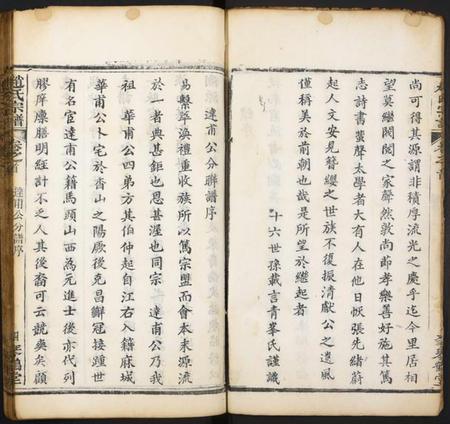 尚可得其源謂非積厚流光之處乎迄今里居相
望莫繼閥閱之家聲然敦尚節孝樂善好施其篤
志詩書蜚聲太學者大有人在他日恢張先緒蔚
起人文安見簪纓之世族不復振清獻公之遺風
僅稱美於前朝也哉是所望於繼起者
十六世孫載言青峯氏謹識
達甫公分聯譜序
易繫萃渙禮重收族所以篤宗盟而會本末源流
於一者典甚鉅也思甚渥也同宗 達甫公乃我
祖 華甫公四弟方其伯仲起自江右入籍麻城
華甫公卜宅於香山之陽厥後克昌冠接踵世
有名宦達甫公籍馬頭山西為元進士後亦代列
膠庠廩膳明經計不乏人其後裔可云兢爽矣顧
趙氏宗譜 卷之首 達甫公分譜序 四 琴鶴堂